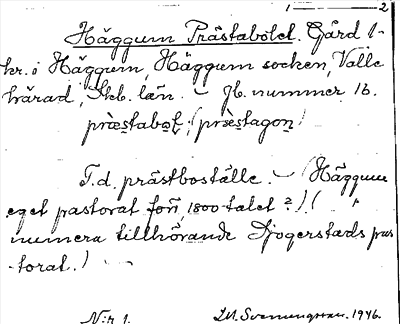 1 — 2
Häggum Prästabolet. Gård 1-
kr. i Häggum, Häggum socken, Valle
härad, Skb. län. — Jb. nummer 1b.
præstabol, (præstagon)
F.d. prästboställe. — (Häggum
eget pastorat före 1800-talet?) (
numera tillhörande Sjogerstads pas
-torat.) —
N:r 1. I.M. Svenungsson. 1946.